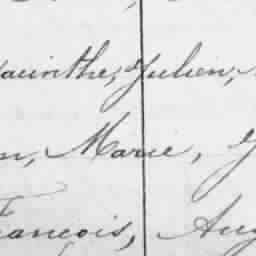 acinthe, Julien,
n, Marie,
François, Aug